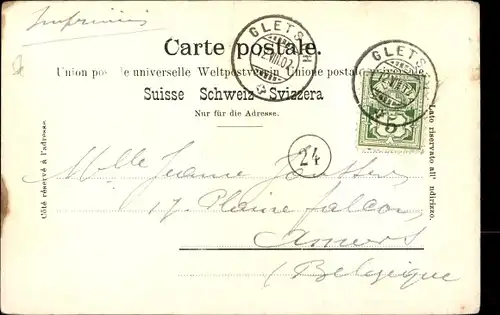 Imprimés
Carte postale.
Union postale universelle Weltpostverein Unione postale universale
Suisse Schweiz Svizzera
Nur für die Adresse.
Côté réservé à l'adresse.
Lato riservato all' indirizzo.
GLETSCH
VIII.02
GLETSCH
5
24
Mlle Jeanne
17. Plaine falcon
Anvers
(Belgique